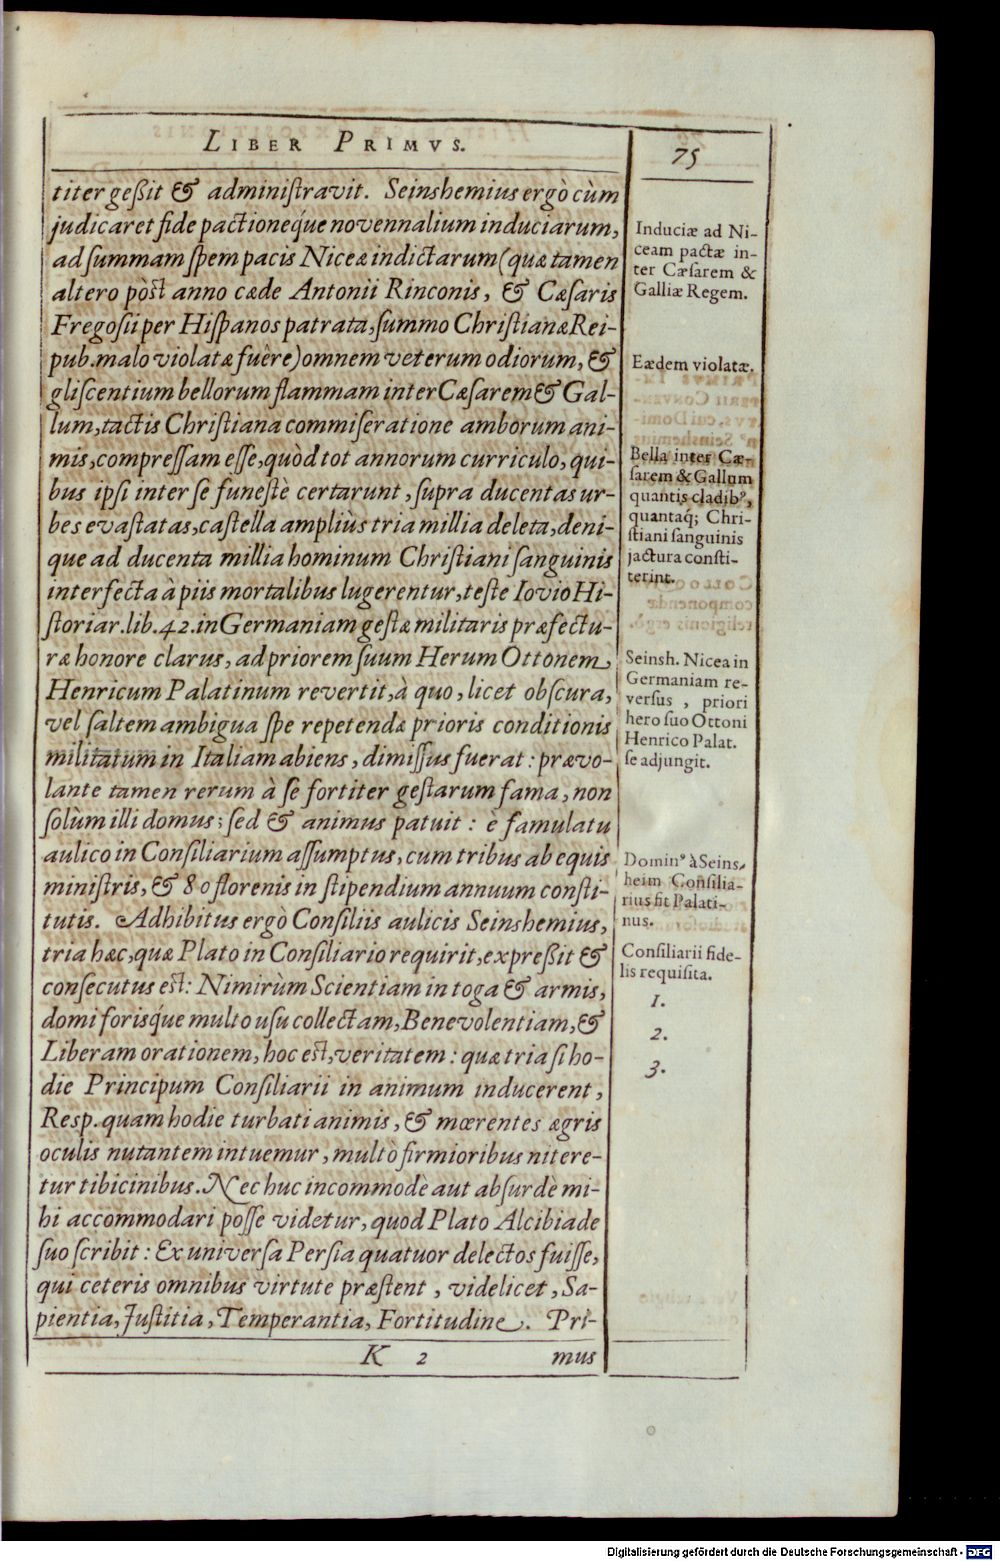 LIBER PRIMVS.
75
titer geßit & administravit. Seinshemius ergò cùm
judicaret fide pactioneq́ue novennalium induciarum,
ad summam spem pacis Niceæ indictarum (quæ tamen
altero pòst anno cæde Antonii Rinconis, & Cæsaris
Fregosii per Hispanos patrata, summo Christianæ Rei-
pub. malo violatæ fuêre) omnem veterum odiorum, &
gliscentium bellorum flammam inter Cæsarem & Gal-
lum, tactis Christiana commiseratione amborum ani-
mis, compressam esse, quòd tot annorum curriculo, qui-
bus ipsi inter se funestè certarunt, supra ducentas ur-
bes evastatas, castella ampliùs tria millia deleta, deni-
que ad ducenta millia hominum Christiani sanguinis
interfecta à piis mortalibus lugerentur, teste Iovio Hi-
storiar. lib. 42. in Germaniam gestæ militaris præfectu-
ræ honore clarus, ad priorem suum Herum Ottonem
Henricum Palatinum revertit, à quo, licet obscura,
vel saltem ambigua spe repetendæ prioris conditionis
militatum in Italiam abiens, dimissus fuerat: prævo-
lante tamen rerum à se fortiter gestarum fama, non
solùm illi domus; sed & animus patuit: è famulatu
aulico in Consiliarium assumptus, cum tribus ab equis
ministris, & 80 florenis in stipendium annuum consti-
tutis. Adhibitus ergò Consiliis aulicis Seinshemius,
tria hæc, quæ Plato in Consiliario requirit, expreßit &
consecutus est: Nimirùm Scientiam in toga & armis,
domi forisq́ue multo usu collectam, Benevolentiam, &
Liberam orationem, hoc est, veritatem: quæ tria si ho-
die Principum Consiliarii in animum inducerent,
Resp. quam hodie turbati animis, & mœrentes ægris
oculis nutantem intuemur, multò firmioribus nitere-
tur tibicinibus. Nec huc incommodè aut absurdè mi-
hi accommodari posse videtur, quod Plato Alcibiade
suo scribit: Ex universa Persia quatuor delectos fuisse,
qui ceteris omnibus virtute præstent, videlicet, Sa-
pientia, Justitia, Temperantia, Fortitudine. Pri-
K 2
mus
Induciæ ad Ni-
ceam pactæ in-
ter Cæsarem &
Galliæ Regem.
Eædem violatæ.
Bella inter Cæ-
sarem & Gallum
quantis cladibꝰ,
quantaq́; Chri-
stiani sanguinis
jactura consti-
terint.
Seinsh. Nicea in
Germaniam re-
versus, priori
hero suo Ottoni
Henrico Palat.
se adjungit.
Dominꝰ à Seins-
heim Consilia-
rius fit Palati-
nus.
Consiliarii fide-
lis requisita.
1.
2.
3.
Digitalisierung gefördert durch die Deutsche Forschungsgemeinschaft - DFG